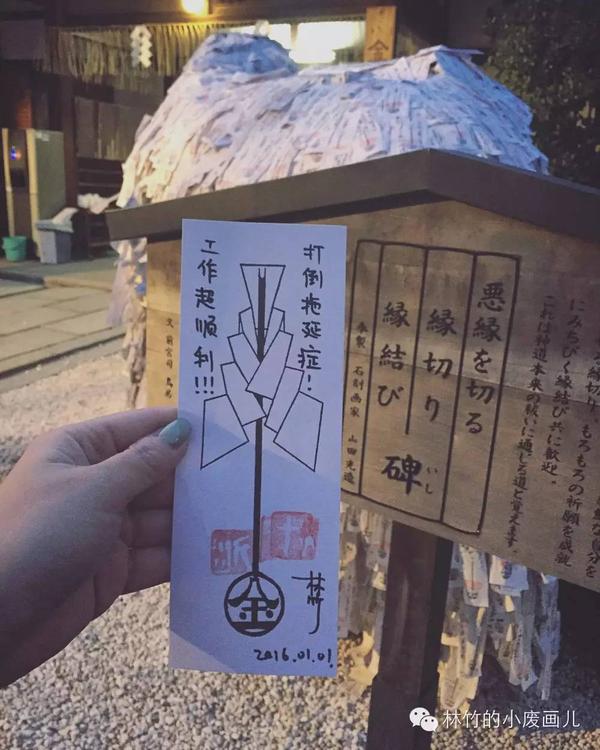 打倒拖延症！
工作超順利!!!
金
林竹
2016.01.01
悪縁を切る
縁切り
縁結び
碑
いし
奉製 石刻画家 山田光造
文 前宮司 鳥居
縁切り、もろもろの祈願を感謝
にみちびく縁結び共に歓迎。
これは神道本来の祓いに通じる道と覚えます。
林竹的小废画儿